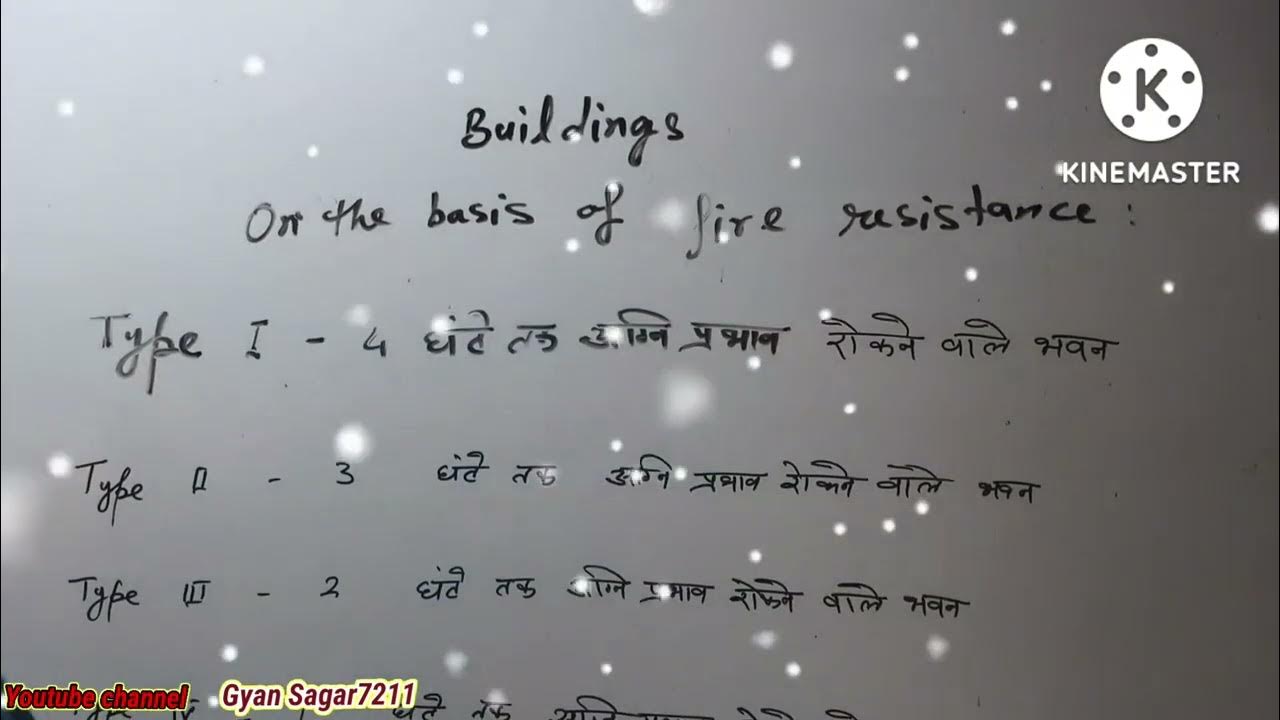 K
KINEMASTER
Buildings
On the basis of fire resistance :
Type I - 4 घंटे तक अग्नि प्रभाव रोकने वाले भवन
Type II - 3 घंटे तक अग्नि प्रभाव रोकने वाले भवन
Type III - 2 घंटे तक अग्नि प्रभाव रोकने वाले भवन
घंटे तक
Youtube channel Gyan Sagar7211